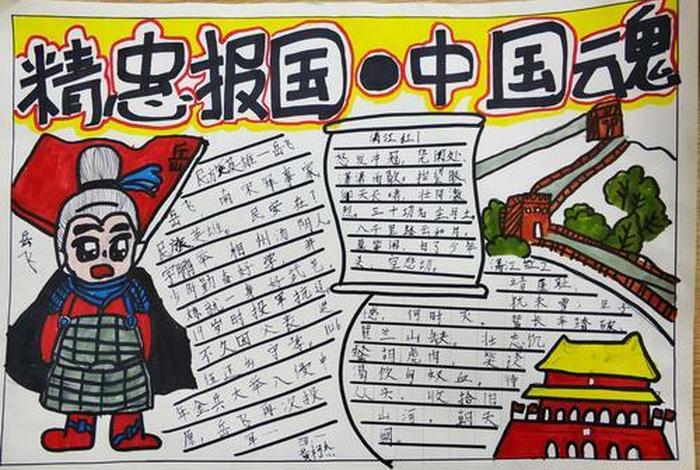 精忠报国●中国魂
岳
岳飞
民族英雄—岳飞
岳飞 南宋军事家
民族英雄。 民
字鹏举 相州汤阴人
少时勤奋好学, 并
炼就一身好武艺.
19岁时投军抗辽
不久因父丧, 退
伍还乡守孝。1126
年金兵大举入侵中
原, 岳飞再次投
军…
满江红1
怒发冲冠, 凭阑处、
潇潇雨歇, 抬望眼
仰天长啸, 壮怀激
烈。三十功名尘与土
八千里路云和月,
莫等闲、白了少年
头, 空悲切.
满江红2
靖康耻,
犹未雪, 臣子
恨, 何时灭。 驾长车踏破、
贺兰山缺。 壮志饥
餐胡虏肉, 笑谈
渴饮匈奴血。 待
从头、收拾旧
山河, 朝天
阙。